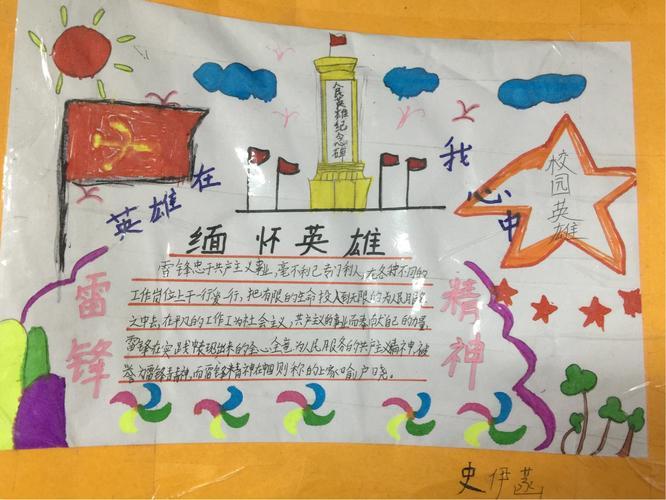 英雄在我心中
英雄纪念碑
校园英雄
缅怀英雄
雷锋
精神
雷锋忠于共产主义事业,毫不利己专门利人,在各种不同的
工作岗位上干一行爱一行,把有限的生命投入到无限的为人民服务
之中去,在平凡的工作工为社会主义,共产主义的事业而奉献自己的力量,
雷锋在实践中表现出来的全心全意为人民服务的共产主义精神,被
誉为雷锋精神,而雷锋精神在中国则称的上家喻户晓。
史伊